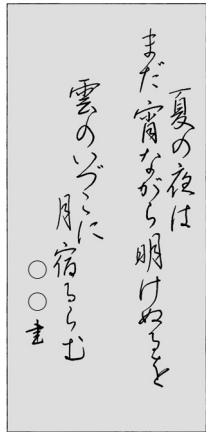 夏の夜は
まだ宵ながら明けぬるを
雲のいづこに
月宿るらむ
○○書